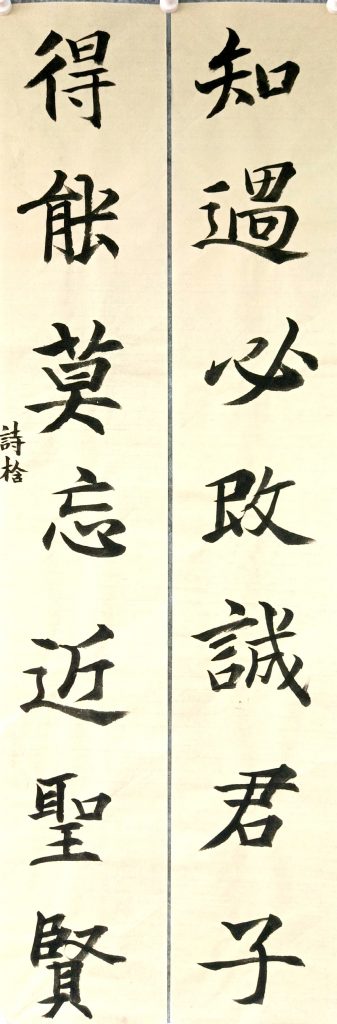 知過必改誠君子
得能莫忘近聖賢
詩栓